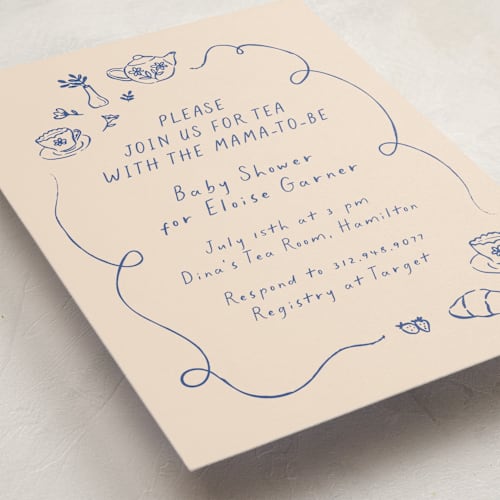 PLEASE
JOIN US FOR TEA
WITH THE MAMA-TO-BE
Baby Shower
for Eloise Garner
July 15th at 3 pm
Dina's Tea Room, Hamilton
Respond to 312.948.9077
Registry at Target